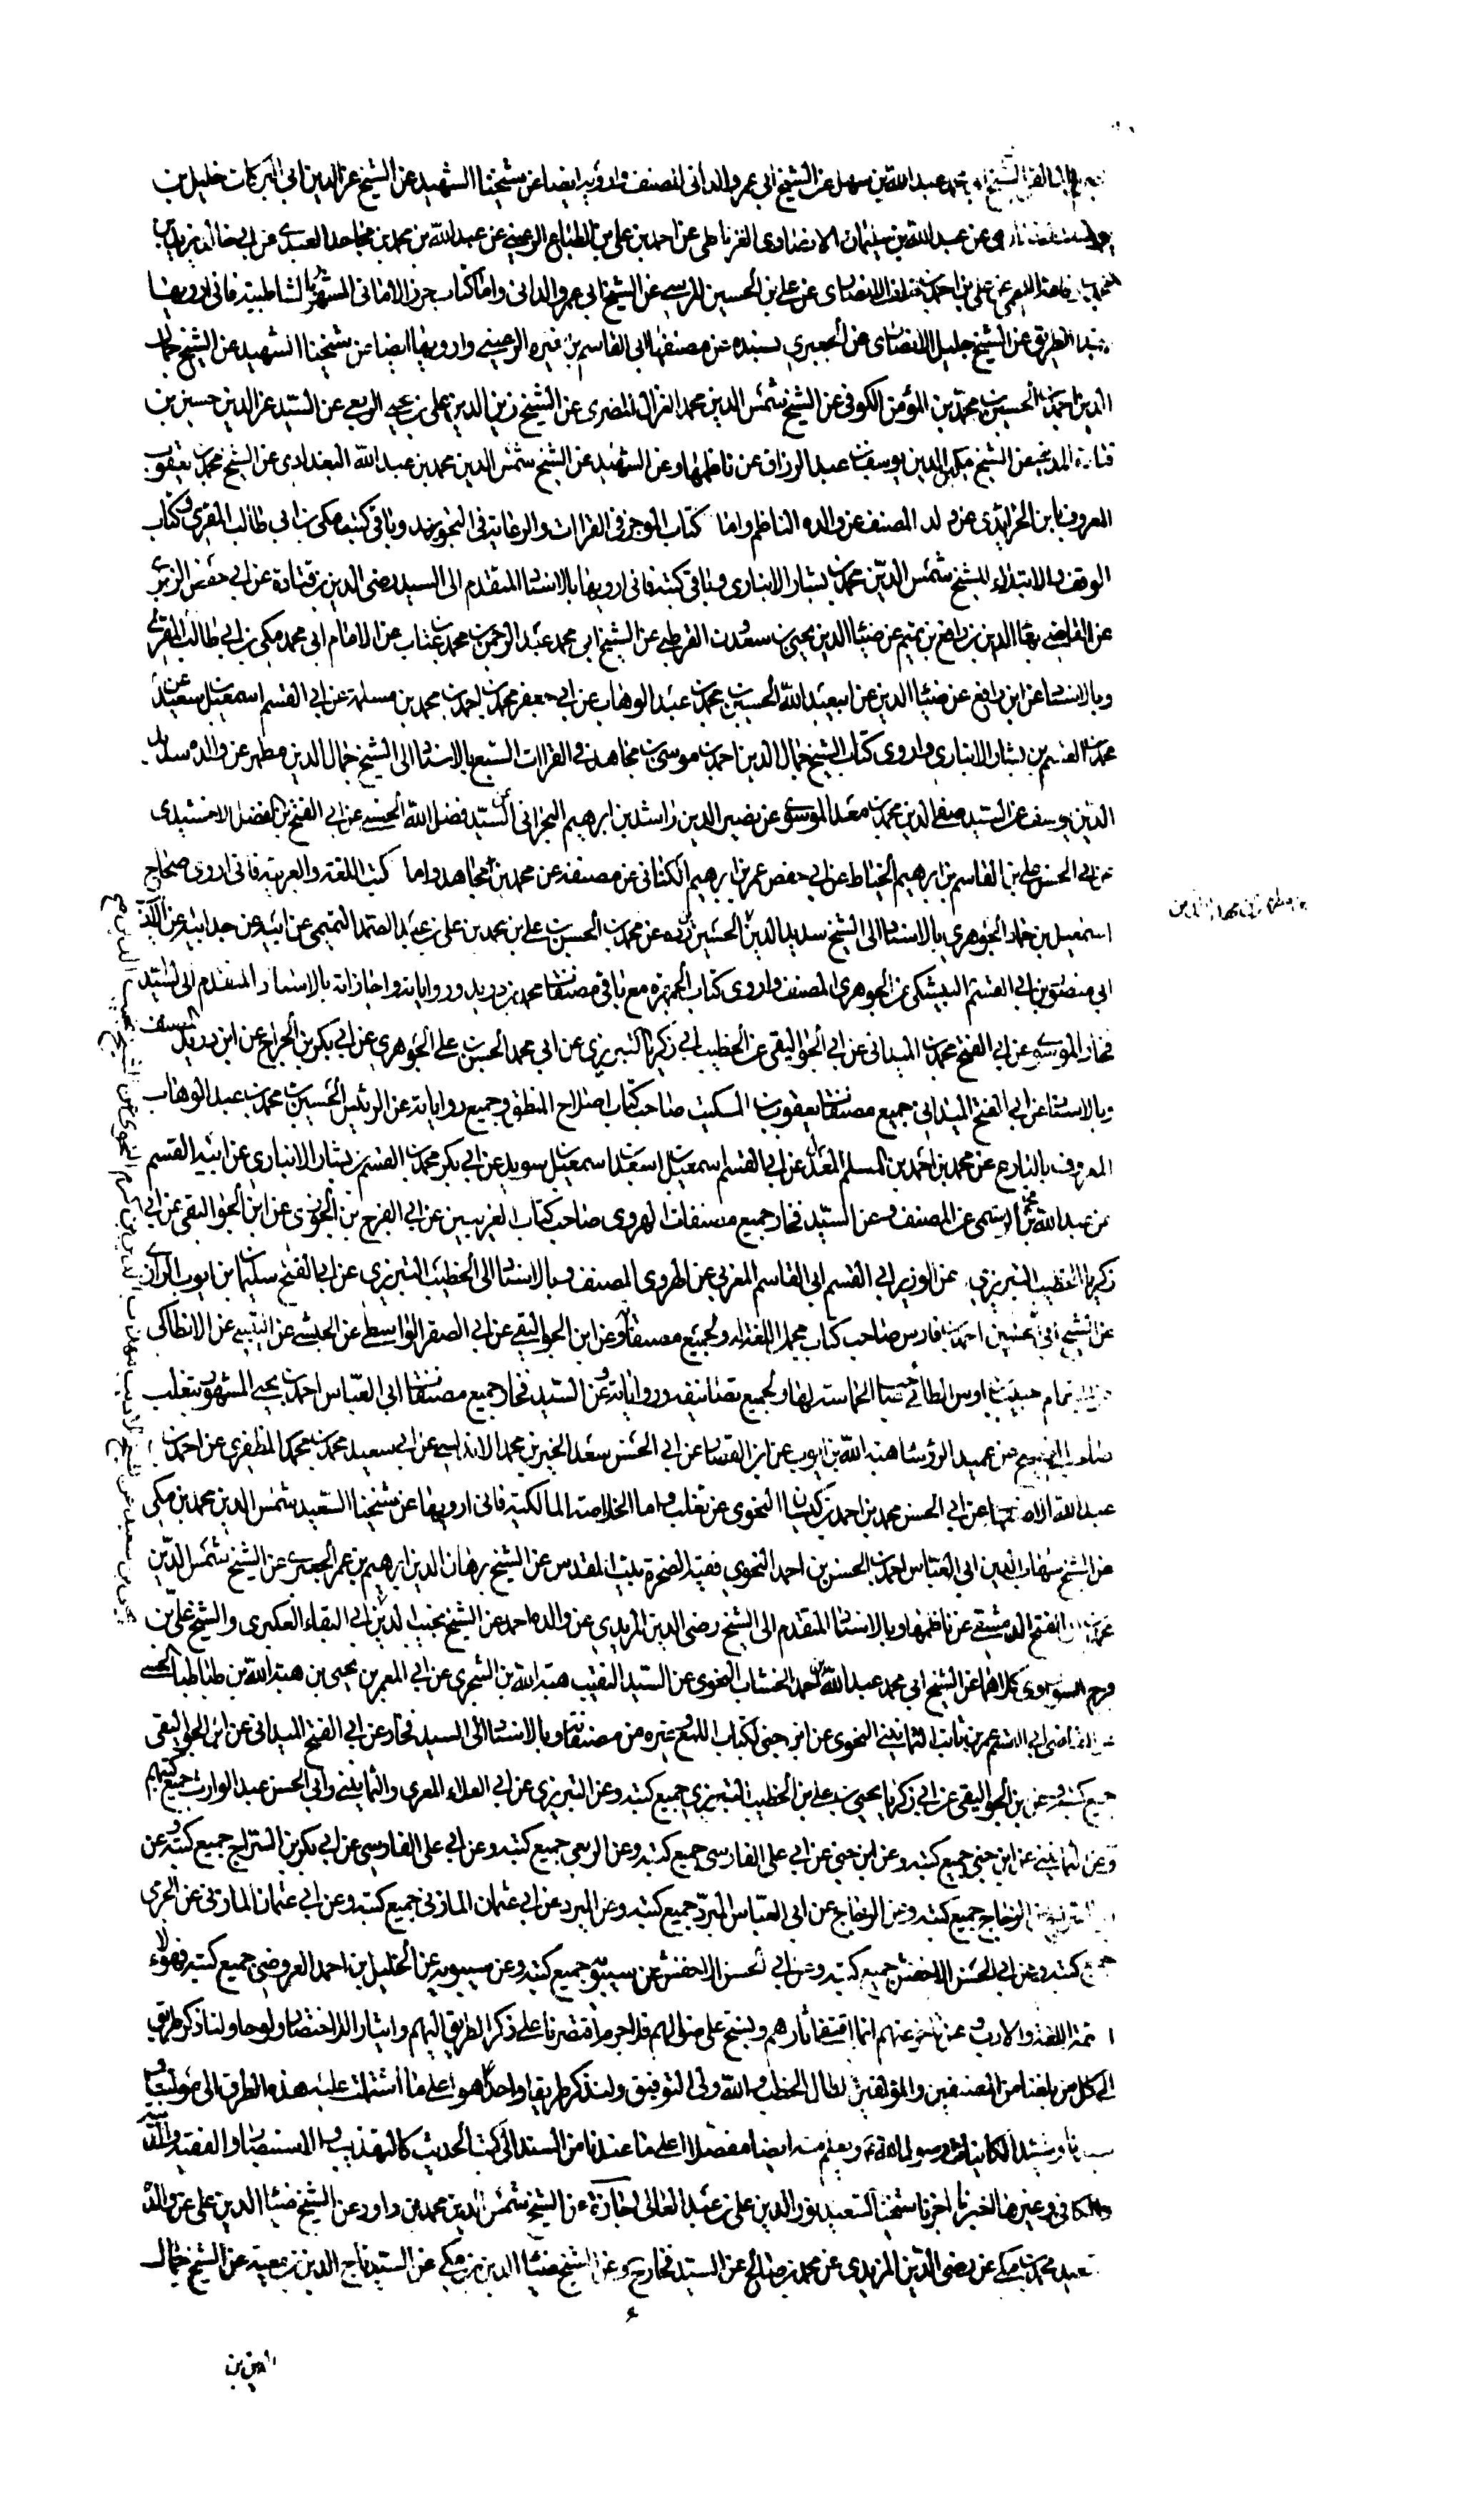 محمد عبد الله بن سهل عن الشيخ ابي عمرو الداني المصنف وارويه ايضا عن شيخنا الشهيد عن الشيخ عز الدين ابي البركات خليل بن
عن عبد الله بن سليمان الانصاري الغرناطي عن احمد بن علي بن الطباع الرعيني عن عبد الله بن محمد بن مجاهد العبدي عن ابي خالد يزيد بن
عن علي بن احمد بن خلف الانصاري عن علي بن الحسين المرسي عن الشيخ ابي عمرو الداني واما كتاب حرز الاماني المشهور بالشاطبية فاني ارويها
الطريق عن الشيخ خليل الانصاري عن الجعبري بسنده عن مصنفها ابي القاسم بن فيره الرعيني وارويها ايضا عن شيخنا الشهيد عن الشيخ جمال
الدين احمد بن الحسين بن محمد بن المؤمن الكوفي عن الشيخ شمس الدين محمد الغزال المضري عن الشيخ زين الدين علي بن يحيى الربعي عن السيد عز الدين حسين بن
قتادة المدني عن الشيخ مكين الدين يوسف بن عبد الرزاق عن ناظمها وعن الشهيد عن الشيخ شمس الدين محمد بن عبد الله البغدادي عن الشيخ محمد بن يعقوب
المعروف بابن الجرائدي عن ولد المصنف عن والده الناظم واما كتاب الموجز في القراات والرعاية في التجويد وباقي كتب مكي بن ابي طالب المقري وكتاب
الوقف والابتداء للشيخ شمس الدين محمد بن بشار الانباري وباقي كتبه فاني ارويها بالاسناد المتقدم الى السيد رضى الدين بن قتادة عن ابي حفص الزبري
عن القاضي بهاء الدين بن رافع بن تميم عن ضياء الدين يحيى بن سعدون القرطبي عن الشيخ ابي محمد عبد الرحمن بن محمد بن عتاب عن الامام ابي محمد مكي بن ابي طالب المقري
وبالاسناد عن ابن رافع عن ضياء الدين عن ابي عبد الله الحسين بن محمد بن عبد الوهاب عن ابي جعفر محمد بن احمد بن محمد بن مسلمة عن ابي القسم اسمعيل بن سعيد عن
محمد بن القسم بن بشار الانباري واروي كتاب الشيخ جمال الدين احمد بن موسى بن مجاهد في القراات السبع بالاسناد الى الشيخ جمال الدين مطهر عن والده سديد
الدين يوسف عن السيد صفي الدين محمد بن معد الموسوي عن نصير الدين راشد بن ابرهيم البحراني عن السيد فضل الله الحسني عن ابي الفتح بن الفضل الاخشيدي
عن ابي الحسن علي بن القاسم بن ابرهيم الخياط عن ابي حفص عمر بن ابرهيم الكتاني عن مصنفه عن محمد بن مجاهد واما كتب اللغة والعربية فاني اروي صحاح
اسمعيل بن حماد الجوهري بالاسناد الى الشيخ سديد الدين الحسين بن رده عن محمد بن الحسين بن علي بن محمد بن علي بن عبد الصمد التميمي عن ابيه عن جد ابيه عن الاديب
ابي منصور بن ابي القسم البيشكي عن الجوهري المصنف واروي كتاب الجمهرة مع باقي مصنفات محمد بن دريد ورواياته واجازاته بالاسناد المتقدم الى السيد
فخار الموسوي عن ابي الفتح محمد بن الميداني عن ابي الجواليقي عن الخطيب ابي زكريا التبريزي عن ابي محمد الحسن بن علي الجوهري عن ابي بكر بن الجراح عن ابن دريد المصنف
وبالاسناد عن ابي الفتح الميداني جميع مصنفات يعقوب بن السكيت صاحب كتاب اصلاح المنطق وجميع رواياته عن الرئيس الحسين بن محمد بن عبد الوهاب
المعروف بالبارع عن محمد بن احمد بن المسلم المعدل عن ابي القسم اسمعيل بن اسعد بن اسمعيل بن سويد عن ابي بكر محمد بن القسم بن بشار الانباري عن ابيه القسم
عن عبد الله بن محمد الرستمي عن المصنف وعن السيد فخار جميع مصنفات الهروي صاحب كتاب الغريبين عن ابي الفرج بن الجوزي عن ابن الجواليقي عن ابي
زكريا الخطيب التبريزي عن الوزير ابي القسم ابي القاسم المغربي عن الهروي المصنف وبالاسناد الى الخطيب التبريزي عن ابي الفتح سليمان بن ايوب الرازي
عن الشيخ ابي الحسين احمد بن فارس صاحب كتاب مجمل اللغة له ولجميع مصنفاته وعن ابن الجواليقي عن ابي الصقر الواسطي عن الحبشي عن التنيسي عن الانطاكي
تمام حبيب بن اوس الطائي صاحب الحماسة لها ولجميع تصانيفه ورواياته وعن السيد فخار جميع مصنفات ابي العباس احمد بن يحيى المشهور بثعلب
عن عميد الرؤسا هبة الله بن ايوب عن ابن القصار عن ابي الحسن سعد الخير بن محمد الاندلسي عن ابي سعيد محمد بن محمد المظفري عن احمد بن
عبد الله عن ابي الحسن محمد بن احمد بن كيسان النحوي عن ثعلب واما الخلاصة المالكية فاني ارويها عن شيخنا السعيد شمس الدين محمد بن مكي
عن الشيخ شهاب الدين ابي العباس احمد بن الحسن بن احمد النحوي فقيه الصخرة ببيت المقدس عن الشيخ برهان الدين ابرهيم بن عمر الجعبري عن الشيخ شمس الدين
الفتح الدمشقي عن ناظمها وبالاسناد المتقدم الى الشيخ رضى الدين المزيدي عن والده احمد عن الشيخ نجيب الدين عن ابي البقاء العكبري والشيخ علي بن
فرج السوراوي كلاهما عن الشيخ ابي محمد عبد الله بن احمد الخشاب النحوي عن السيد النقيب هبة الله بن الشجري عن ابي المعمر بن يحيى بن هبة الله بن طباطبا الحسني
عن القاضي ابي القسم عمر بن ثابت الثمانيني النحوي عن ابن جني لكتاب اللمع وغيره من مصنفاته وبالاسناد الى السيد فخار عن ابي الفتح الميداني عن ابن الجواليقي
جميع كتبه وعن بن الجواليقي عن ابي زكريا يحيى بن علي بن الخطيب التبريزي جميع كتبه وعن التبريزي عن ابي العلاء المعري والثمانيني وابي الحسن عبد الوارث جميع كتبهم
وعن الثمانيني عن ابن جني جميع كتبه وعن ابن جني عن ابي علي الفارسي جميع كتبه وعن الربعي جميع كتبه وعن ابي علي الفارسي عن ابي بكر بن السراج جميع كتبه وعن
الزجاج جميع كتبه وعن الزجاج عن ابي العباس المبرد جميع كتبه وعن المبرد عن ابي عثمان المازني جميع كتبه وعن ابي عثمان المازني عن الجرمي
جميع كتبه وعن ابي الحسن الاخفش جميع كتبه وعن ابي الحسن الاخفش عن سيبويه جميع كتبه وعن سيبويه عن الخليل بن احمد العروضي جميع كتبه فهولاء
ائمة اللغة والادب ومن تاخر عنهم انما اقتفى آثارهم ونسج على منوالهم فلا جرم اقتصرنا على ذكر الطريق اليهم وايثارا للاختصار ولو حاولنا ذكر طريق
الى كل من بلغنا من المصنفين والمؤلفين لطال الخطب والله ولي التوفيق ولنذكر طريقا واحدا هو اعلى ما اشتملت عليه هذه الطرق الى مولينا وسيدنا
وسيد الكاينات رسول الله ويعلم منه ايضا مفصلا اعلى ما عندنا من السند الى كتب الحديث كالتهذيب والاستبصار والفقيه والمدينة
والكافي وغيرها اخبرنا شيخنا السعيد نور الدين علي بن عبد العالي اجازة عن الشيخ شمس الدين محمد بن داود عن الشيخ ضياء الدين علي عن والده
السعيد محمد بن مكي عن رضى الدين المزيدي عن محمد بن صالح عن السيد فخار ح وعن الشيخ ضياء الدين بن مكي عن السيد تاج الدين بن معية عن الشيخ جمال
الدين بن